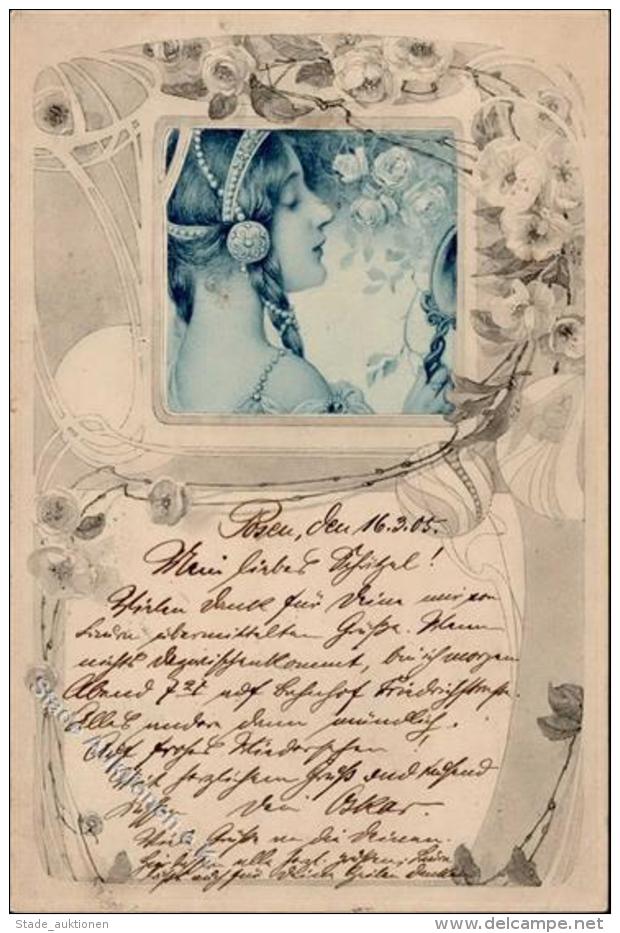 Posen, den 16.3.05.
Mein liebes Schätzel!
Vielen Dank für Deine mir von
übermittelten Grüße. Wenn
nichts dazwischenkommt, bin ich morgen
Abend 7 auf Bahnhof Friedrichstraße.
Alles andere dann mündlich.
Auf frohes Wiedersehen!
Mit herzlichem Gruß und tausend
Küssen Dein Oskar.
Viele Grüße an die Deinen.
alle grüßen,
auch für Zeilen danken
Stade Auktionen
Stade_auktionen
www.delcampe.net